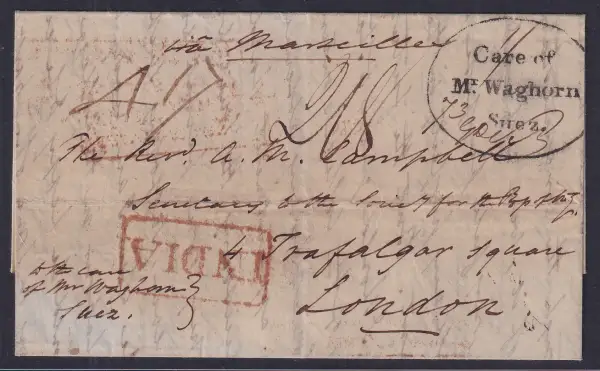 viâ Marseille
Care of
Mr. Waghorn
Suez
The Revd. A. M. Campbell
Secretary to the Society for the
4 Trafalgar Square
London
INDIA
to the care
of Mr Waghorn
Suez.